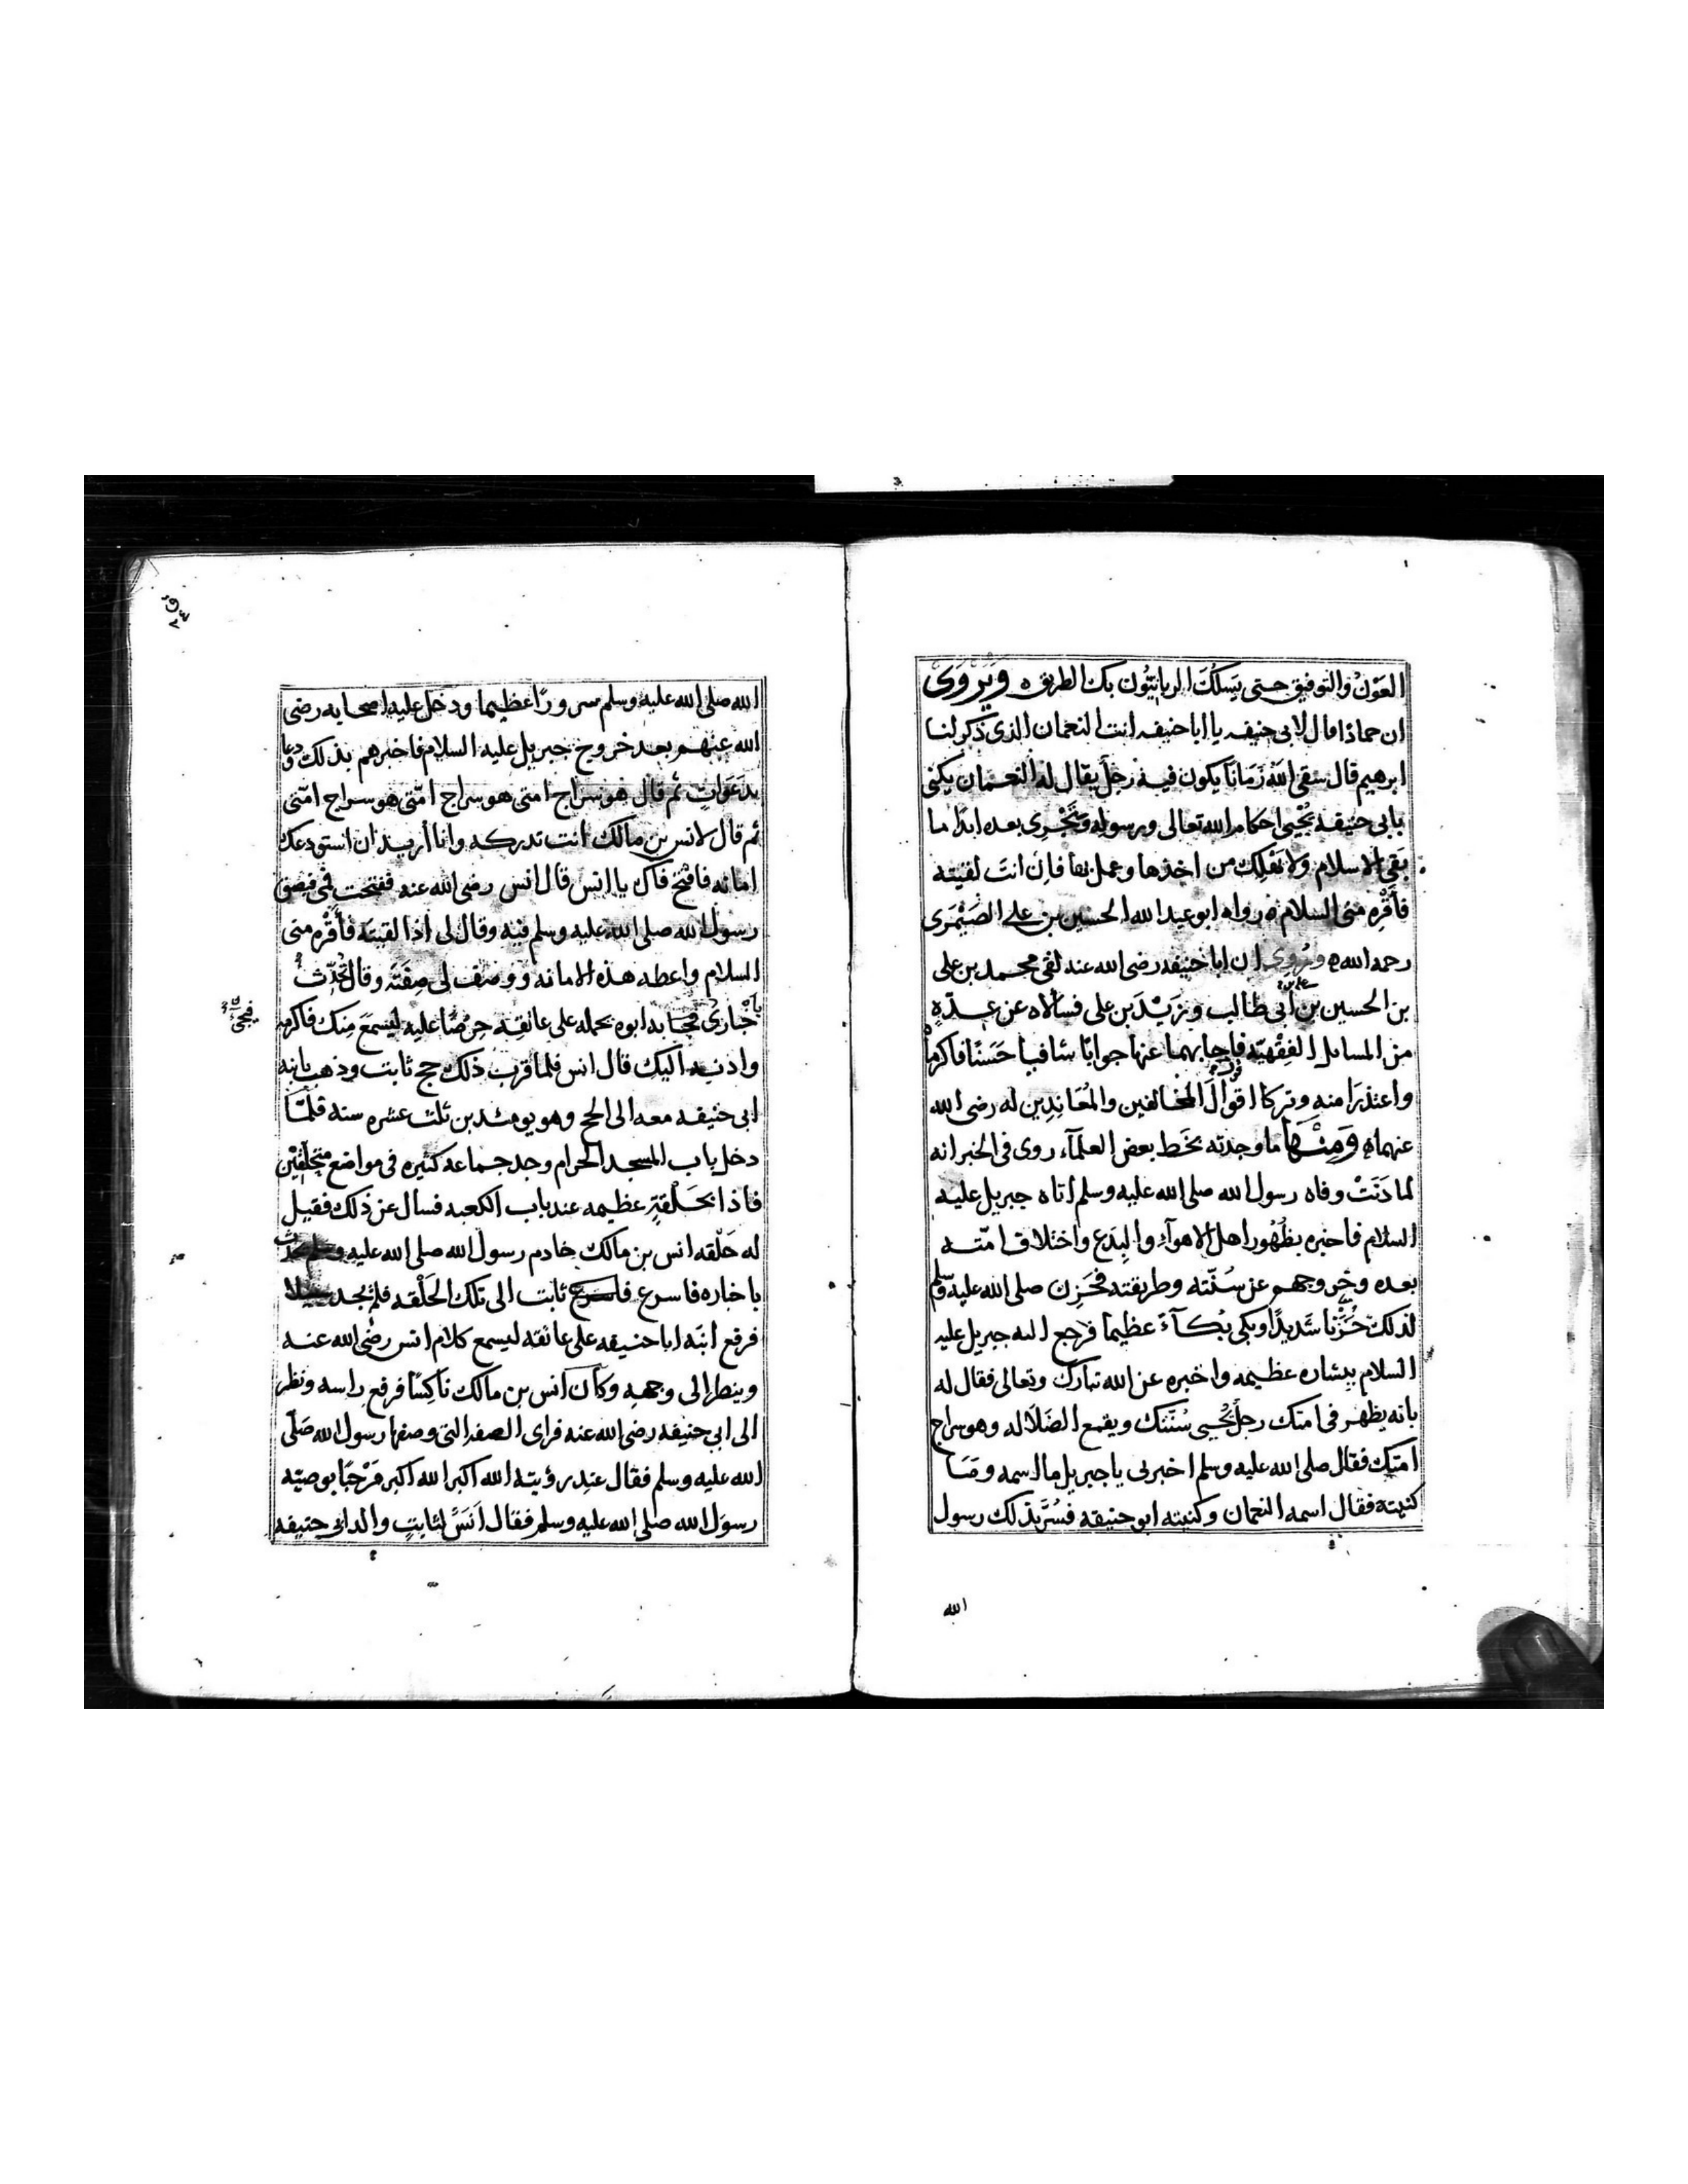 العَوْنُ والتوفيق حتى يَسلُكَ الربانيّون بك الطريق ه وَيُرْوَى
ان حمادًا قال لابى حنيفه يا ابا حنيفه انت النعمان الذى ذكر لنا
ابرهيم قال سقى الله زَمَانًا يكون فيه رجلٌ يقال له النعمان يكنى
بابى حنيفه يُحْيى احكام الله تعالى ورسوله وتَجْرِى بعده ابدًا ما
بَقِىَ الاسلام ولا يَهْلِك من اخذها وعمل بها فاِن انتَ لقيته
فأَقْرِه منى السلام ه رواه ابو عبد الله الحسين بن على الصَيْمَرى
رحمه الله ه ورُوِىَ ان ابا حنيفه رضى الله عنه لقى محمد بن على
بن الحسين بن على بن أبى طالب وزَيْدَ بن على فسألاه عن عِدّةٍ
من المسايل الفِقْهيّه فاجابهما عنها جوابًا شافيا حَسَنًا فاكرماهُ
واعتذرَا منه وتركا اقوالَ المخالفين والمُعَانِدِين له رضى الله
عنهما ه وَمِنْهَا ما وجدته بخَط بعض العلمآء روى فى الخبر انه
لما دَنَتْ وفاه رسول الله صلى الله عليه وسلم اتاه جبريل عليه
السلام فاخبره بظُهُور اهل الاهوآء والبِدَع واختلاف امّته
بعده وخروجهم عن سُنّته وطريقته فَحَزِن صلى الله عليه وسلم
لذلك حُزْنا شَديدًا وبكى بُكآءً عظيما فرجع اليه جبريل عليه
السلام ببِشاره عظيمه واخبره عن الله تبارك وتعالى فقال له
بانه يظهر فى امتك رجلٌ يُحْيى سُنّتك ويقمع الضَلَاله وهو سراج
امتك فقال صلى الله عليه وسلم اخبرنى يا جبريل ما اسمه ومَا
كنيته فقال اسمه النعمان وكنيته ابو حنيفه فسُرَّ بذلك رسول
الله
ق ٢٤
الله صلى الله عليه وسلم سرورًا عظيما ودخل عليه اصحابه رضى
الله عنهم بعد خروج جبريل عليه السلام فاخبرهم بذلك ودعا
بدَعَوَاتٍ ثم قال هو سراج امتى هو سراج امّتى هو سراج امّتى
ثم قال لانس بن مالك انت تدركه وانا أريد ان استودعك
امانه فافتح فاك يا انس قال انس رضى الله عنه ففتحت فمى فبصق
رسول الله صلى الله عليه وسلم فيه وقال لى اذا لقيتَه فأَقْرِه منى
السلام واعطه هذه الامانه ووصف لى صِفَتَه وقال تُحَدِّثُ
بأَخبارى فيجئ به ابوه يحمله على عاتقِه حِرْصًا عليه ليَسمَعَ مِنك فاكرمه
فيجئ
وادنيه اليك قال انس فلما قرب ذلك حج ثابت وذهب بابنه
ابى حنيفه معه الى الحج وهو يومئذ بن ثلث عشره سنه فلمّا
دخل باب المسجد الحرام وجد جماعه كثيره فى مواضع متحلّقين
فاذا بحَلْقةٍ عظيمه عند باب الكعبه فسال عن ذلك فقيل
له حَلْقه انس بن مالك خادم رسول الله صلى الله عليه وسلم يحدّث
باخباره فاسرع ثابت الى تلك الحَلْقه فلم يجد
فرفع ابنَه ابا حنيفه على عاتقه ليسمع كلام انس رضى الله عنه
وينظر الى وجهه وكان انس بن مالك ناكِسًا فرفع راسه ونظر
الى ابى حنيفه رضى الله عنه فراى الصفه التى وصفها رسول الله صَلّى
الله عليه وسلم فقال عند رؤيته الله اكبر الله اكبر مَرْحَبًا بوصيّه
رسول الله صلى الله عليه وسلم فقال اَنَسٌ لثابتٍ والد ابى حنيفه